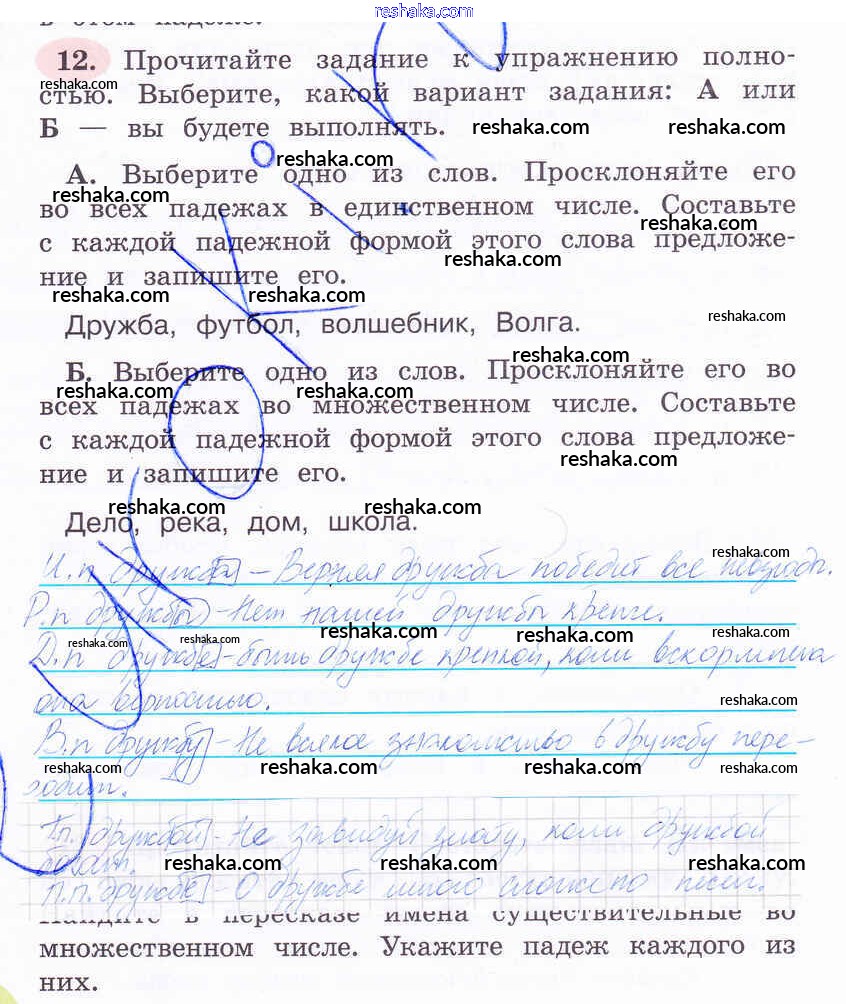 reshaka.com
в этом падеже.
12. Прочитайте задание к упражнению полно-
reshaka.com
стью. Выберите, какой вариант задания: А или
Б — вы будете выполнять. reshaka.com reshaka.com
reshaka.com
А. Выберите одно из слов. Просклоняйте его
reshaka.com
во всех падежах в единственном числе. Составьте
reshaka.com
с каждой падежной формой этого слова предложе-
reshaka.com
ние и запишите его.
reshaka.com reshaka.com
Дружба, футбол, волшебник, Волга. reshaka.com
reshaka.com
Б. Выберите одно из слов. Просклоняйте его во
reshaka.com reshaka.com
всех падежах во множественном числе. Составьте
с каждой падежной формой этого слова предложе-
reshaka.com
ние и запишите его.
reshaka.com reshaka.com
Дело, река, дом, школа.
reshaka.com
И.п дружба – Верная дружба победит все невзгоды.
Р.п дружбы – Нет нашей дружбы крепче.
reshaka.com reshaka.com reshaka.com reshaka.com reshaka.com
Д.п дружбе – быть дружбе крепкой, коли вскормлена
она верностью. reshaka.com
В.п дружбу – Не всякое знакомство в дружбу пере-
reshaka.com reshaka.com reshaka.com reshaka.com
ходит.
Тп. дружбой – Не завидуй злату, коли дружбой
богат. reshaka.com reshaka.com reshaka.com
П.п. дружбе – О дружбе много сложено песен.
Найдите в пересказе имена существительные во
множественном числе. Укажите падеж каждого из
них.